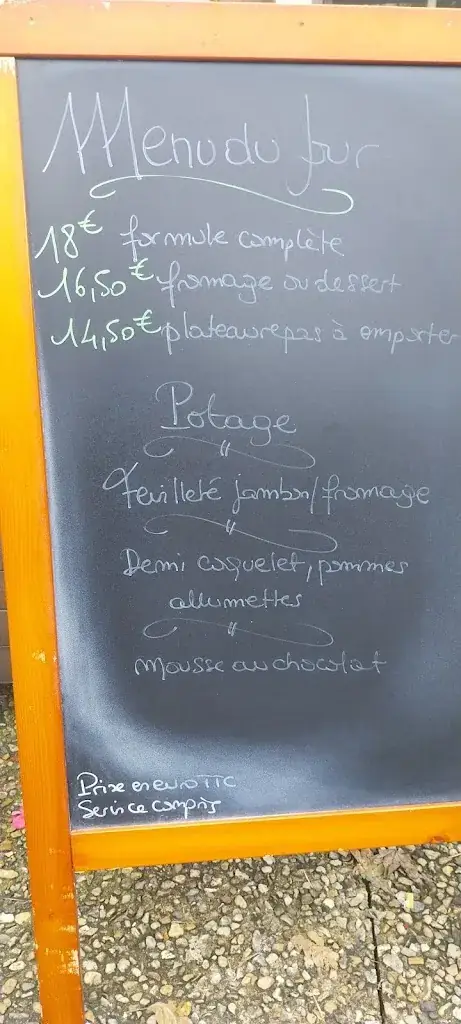 Menu du jour
18€ formule complète
16,50€ fromage ou dessert
14,50€ plateau repas à emporter
Potage
Feuilleté jambon/fromage
Demi coquelet, pommes
allumettes
Mousse au chocolat
Prix en euro TTC
Service compris